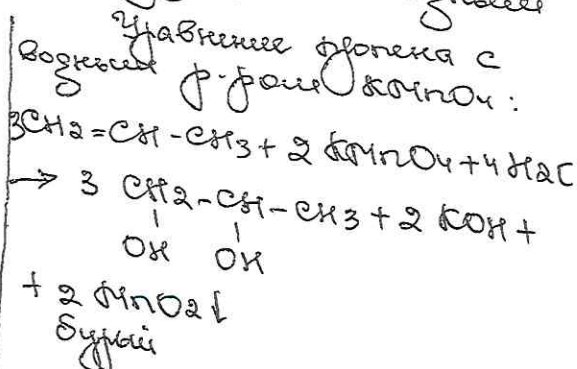 Уравнение пропена с
водным р-ром KMnO4:
3CH2=CH-CH3+2 KMnO4+4H2O
→ 3 CH2-CH-CH3+2 KOH+
OH OH
+ 2 MnO2↓
бурый